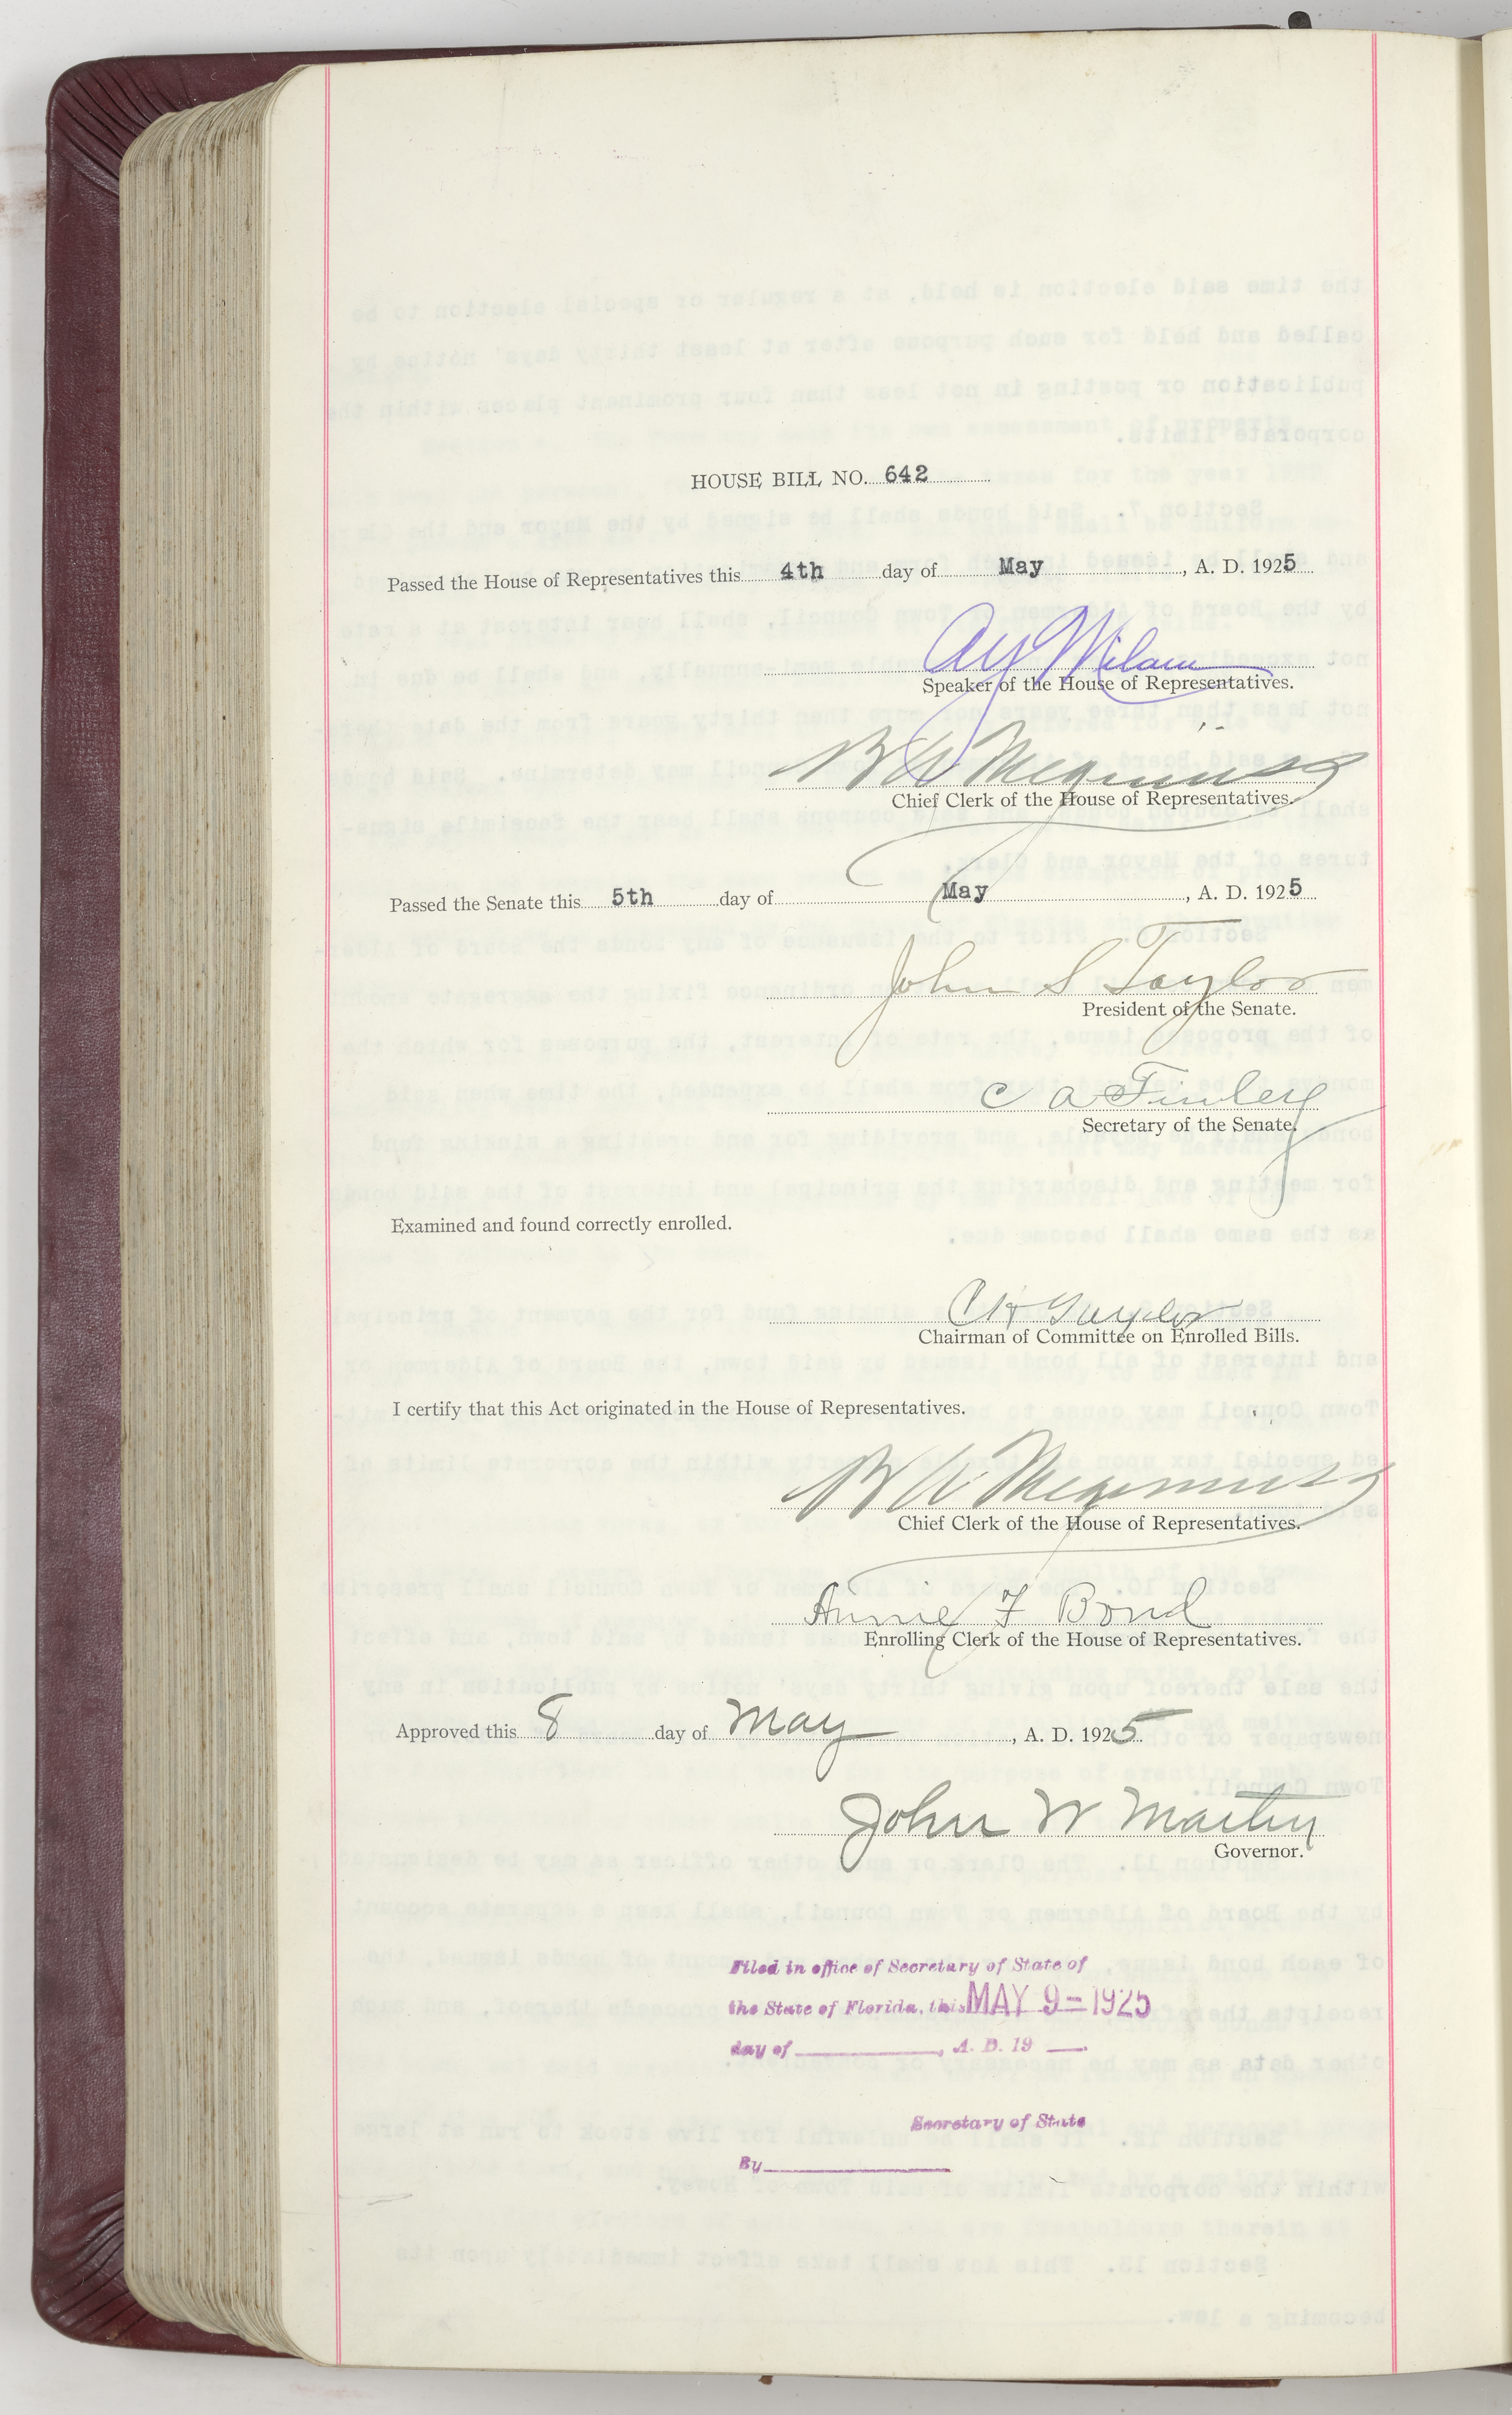 HOUSE BILL NO. 642
Passed the House of Representatives this 4th day of May, A. D. 1925
A Y Milam
Speaker of the House of Representatives.
B A Meginniss
Chief Clerk of the House of Representatives.
Passed the Senate this 5th day of May, A. D. 1925
John S Taylor
President of the Senate.
C A Finley
Secretary of the Senate.
Examined and found correctly enrolled.
Taylor
Chairman of Committee on Enrolled Bills.
I certify that this Act originated in the House of Representatives.
B A Meginniss
Chief Clerk of the House of Representatives.
Annie F Bond
Enrolling Clerk of the House of Representatives.
Approved this 8 day of May, A. D. 1925
John W Martin
Governor.
Filed in office of Secretary of State of
the State of Florida, this MAY 9 - 1925
day of , A. D. 19
Secretary of State
By